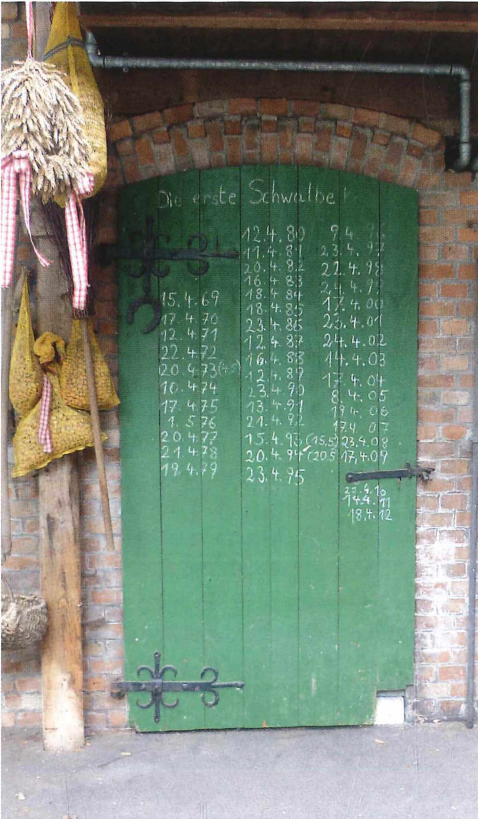 Die erste Schwalbe!
15.4.69
17.4.70
12.4.71
22.4.72
20.4.73
10.4.74
17.4.75
1.5.76
20.4.77
21.4.78
19.4.79
12.4.80
11.4.81
20.4.82
16.4.83
18.4.84
18.4.85
23.4.86
12.4.87
16.4.88
12.4.89
23.4.90
13.4.91
21.4.92
15.4.93 (15.5)
20.4.94 (20.5
23.4.95
9.4
23.4.97
22.4.98
24.4.99
17.4.00
25.4.01
24.4.02
14.4.03
17.4.04
8.4.05
19.4.06
17.4.07
23.4.08
17.4.09
14.4.11
18.4.12